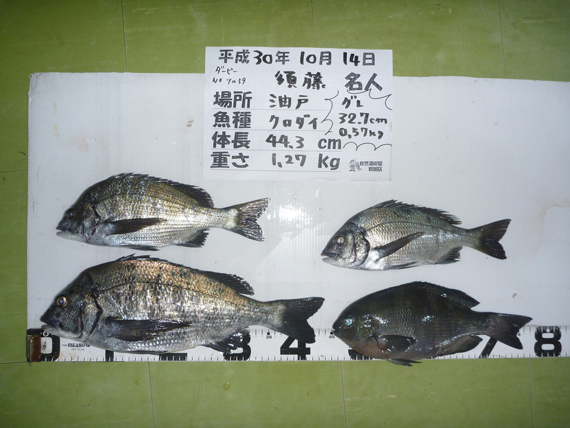 平成30年10月14日
ダービー
須藤 名人
場所 油戸
グレ
魚種 クロダイ
32.7cm
0.57kg
体長 44.3 cm
重さ 1.27 kg
0 1 2 3 4 7 8